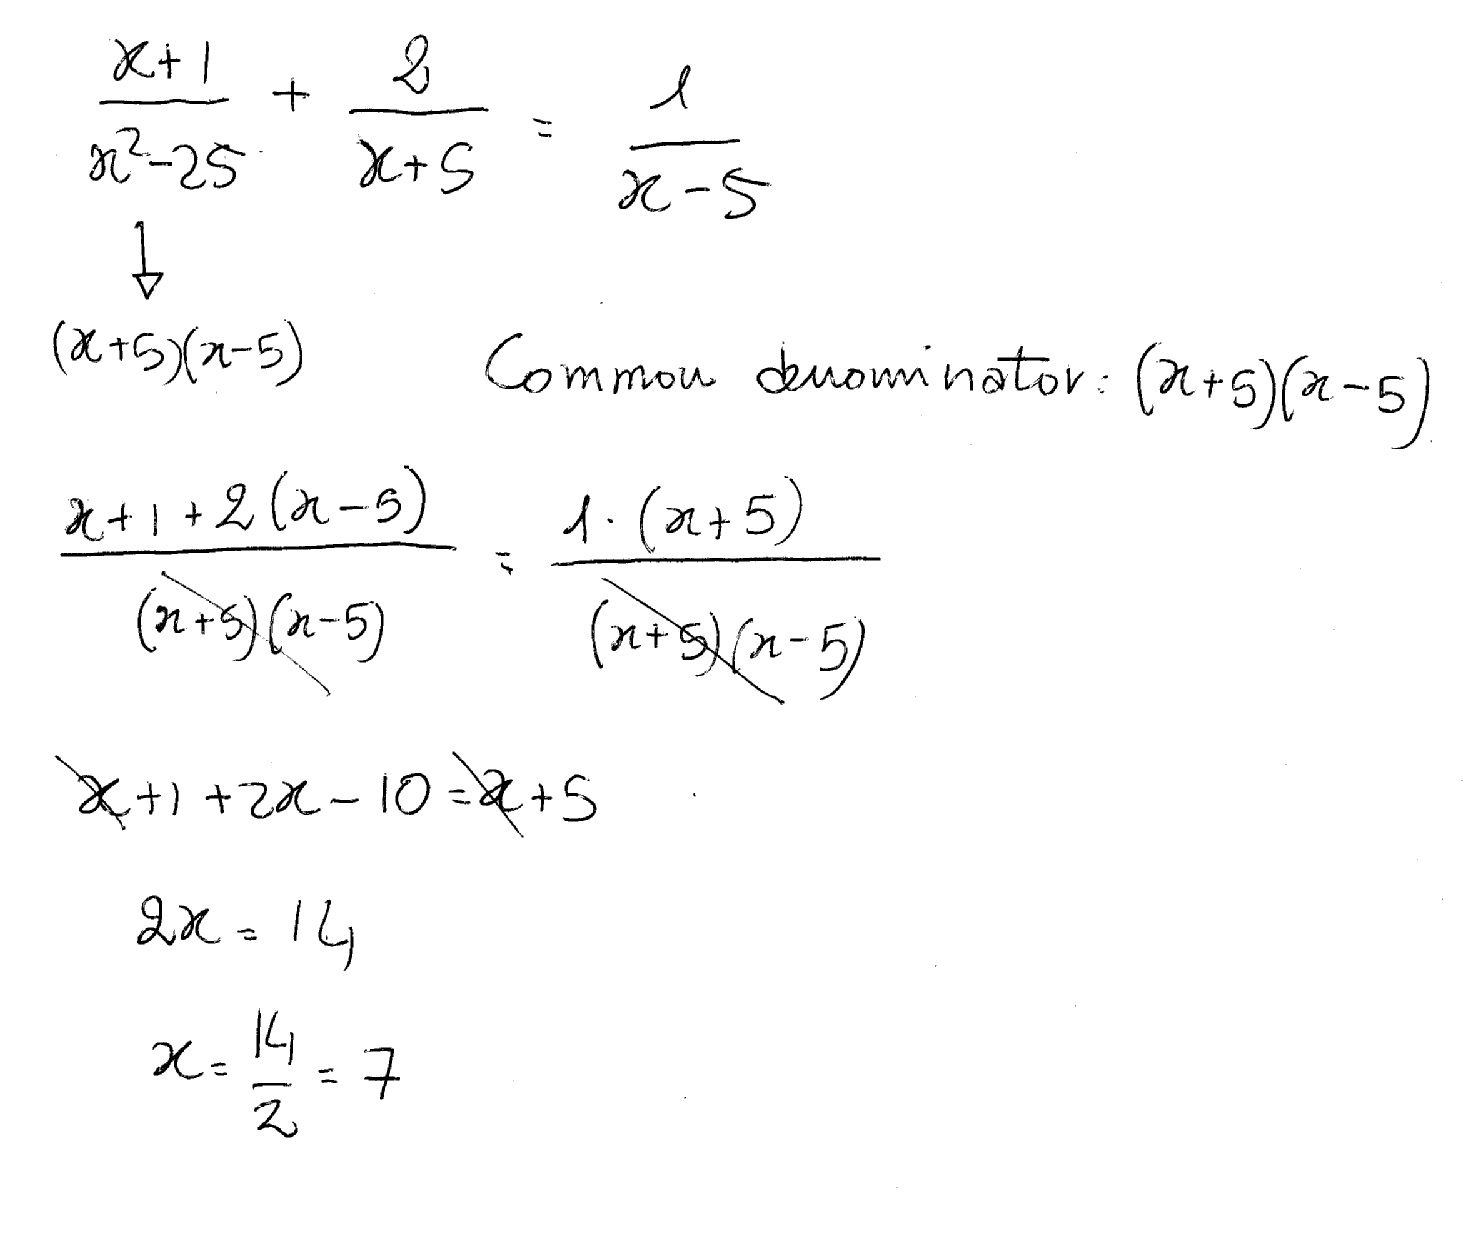 x+1/x²-25 + 2/x+5 = 1/x-5
↓
(x+5)(x-5) Common denominator: (x+5)(x-5)
x+1+2(x-5)/(x+5)(x-5) = 1·(x+5)/(x+5)(x-5)
x+1+2x-10=x+5
2x=14
x=14/2=7